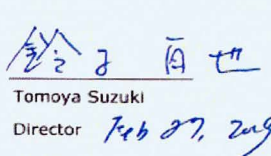 鈴木 百也
Tomoya Suzuki
Director Feb 27, 2019